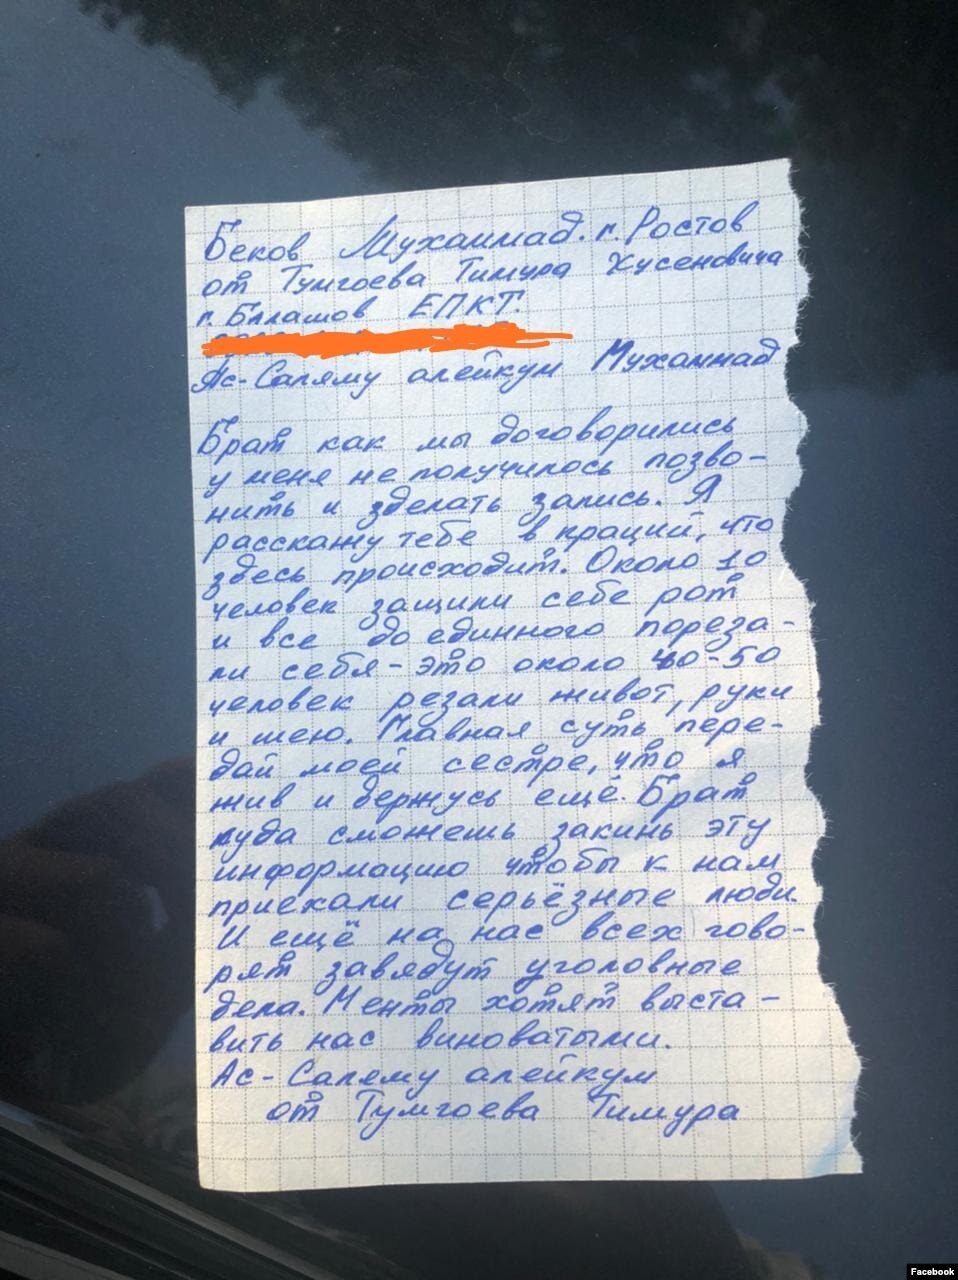 Беков Мухаммад. г. Ростов
от Тумгоева Тимура Хусеновича
г. Бллашов ЕПКТ.
Ас-Саляму алейкум Мухаммад
Брат как мы договорились
у меня не получилось позво-
нить и зделать запись. Я
расскажу тебе в краций, что
здесь происходит. Около 10
человек защили себе рот
и все до единного пореза-
ли себя - это около 40-50
человек резали живот, руки
и шею. Главная суть пере-
дай моей сестре, что я
жив и держусь ещё. Брат
куда сможешь закинь эту
информацию чтобы к нам
приехали серьёзные люди.
И ещё на нас всех гово-
рят завядут уголовные
дела. Менты хотят выста-
вить нас виноватыми.
Ас-Саляму алейкум
от Тумгоева Тимура
Facebook